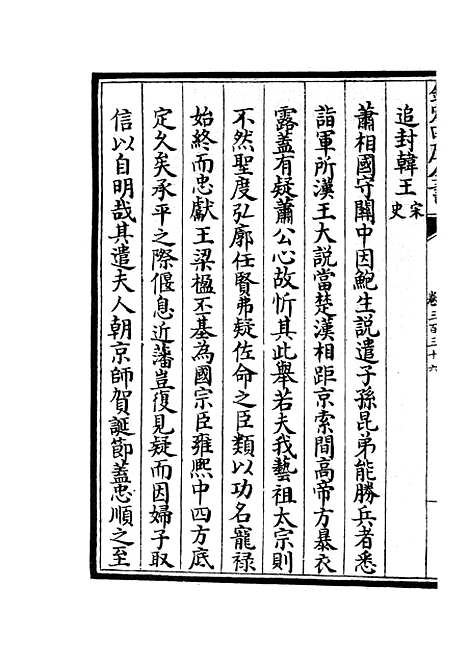 欽定四庫全書
卷三百三十六
追封韓王宋史
蕭相國守關中因鮑生説遣子孫昆弟能勝兵者悉
詣軍所漢王大説當楚漢相距京索間高帝方暴衣
露蓋有疑蕭公心故忻其此舉若夫我藝祖太宗則
不然聖度弘廓任賢弗疑佐命之臣類以功名寵禄
始終而忠獻王梁楹丕基為國宗臣雍熙中四方底
定久矣承平之際偃息近藩豈復見疑而因婦子取
信以自明哉其遣夫人朝京師賀誕節蓋忠順之至